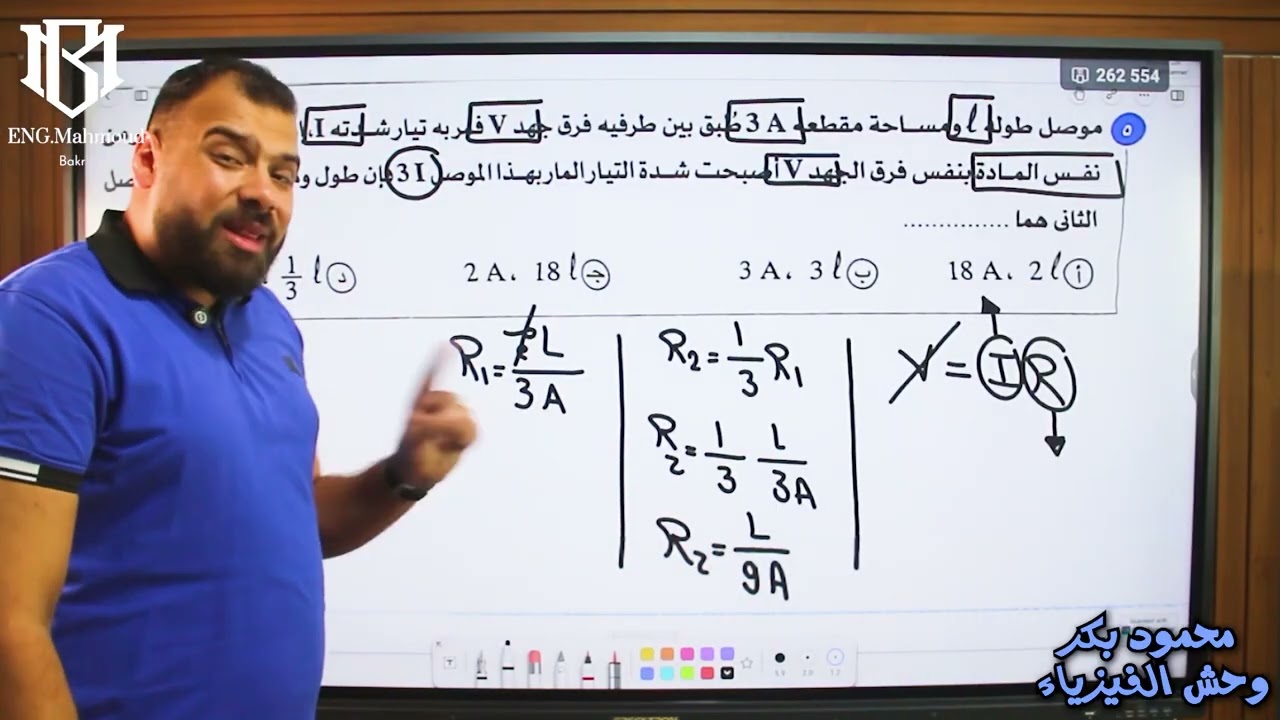 BM
ENG.Mahmoud
Bakr
262 554
٥ موصل طوله l ومساحة مقطعه 3 A طُبق بين طرفيه فرق جهد V فمر به تيار شدته I.
نفس المادة بنفس فرق الجهد V أصبحت شدة التيار المار بهذا الموصل 3 I فإن طول
الثانى هما ...............
أ 18 A، 2 l
ب 3 A، 3 l
ج 2 A، 18 l
د 1/3 l
V = I R
R2 = 1/3 R1
R2 = 1/3 L/3A
R2 = L/9A
R1 = ρL/3A
محمود بكر
وحش الفيزياء